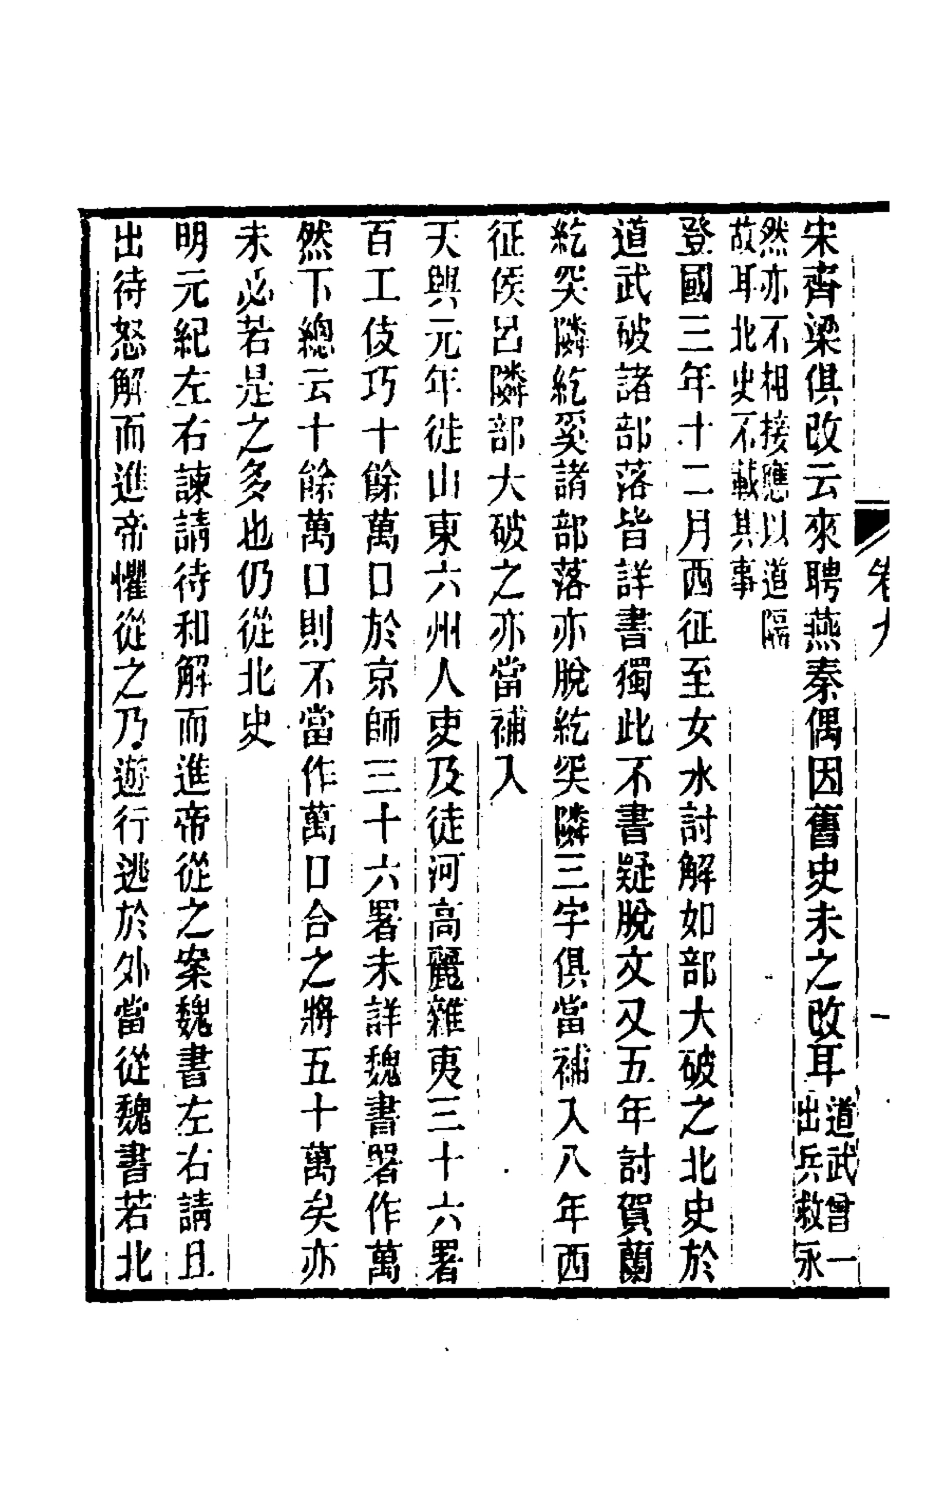 卷九
一
宋齊梁俱改云來聘燕秦偶因舊史未之改耳道武曾一出兵救永
然亦不相接應以道隔故耳北史不載其事
登國三年十二月西征至女水討解如部大破之北史於
道武破諸部落皆詳書獨此不書疑脫文又五年討賀蘭
紇突隣紇奚諸部落亦脫紇突隣三字俱當補入八年西
征侯呂隣部大破之亦當補入
天興元年徙山東六州人吏及徒河高麗雜夷三十六署
百工伎巧十餘萬口於京師三十六署未詳魏書署作萬
然下總云十餘萬口則不當作萬口合之將五十萬矣亦
未必若是之多也仍從北史
明元紀左右諫請待和解而進帝從之案魏書左右請且
出待怒解而進帝懼從之乃遊行逃於外當從魏書若北